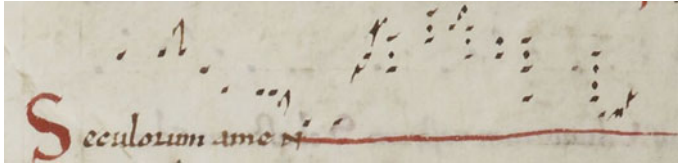 Seculorum amen